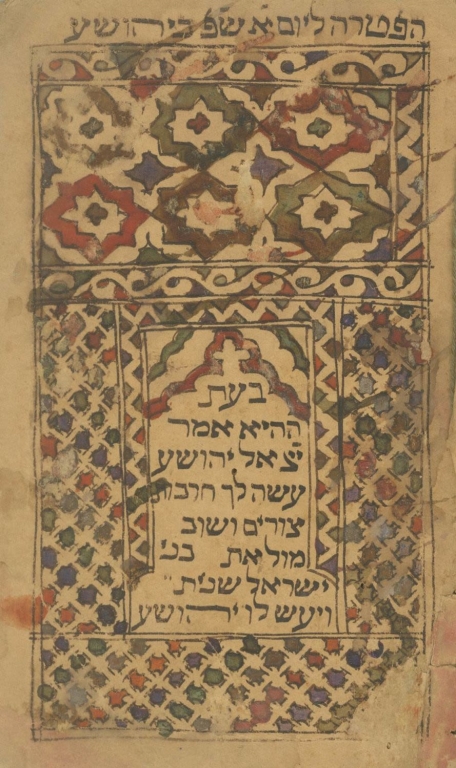 הפטרה ליום א שפ ביהושע
בעת
ההיא אמר
אל יהושע
עשה לך חרבות
צורים ושוב
מול את בני
ישראל שנית
ויעש לו יהושע